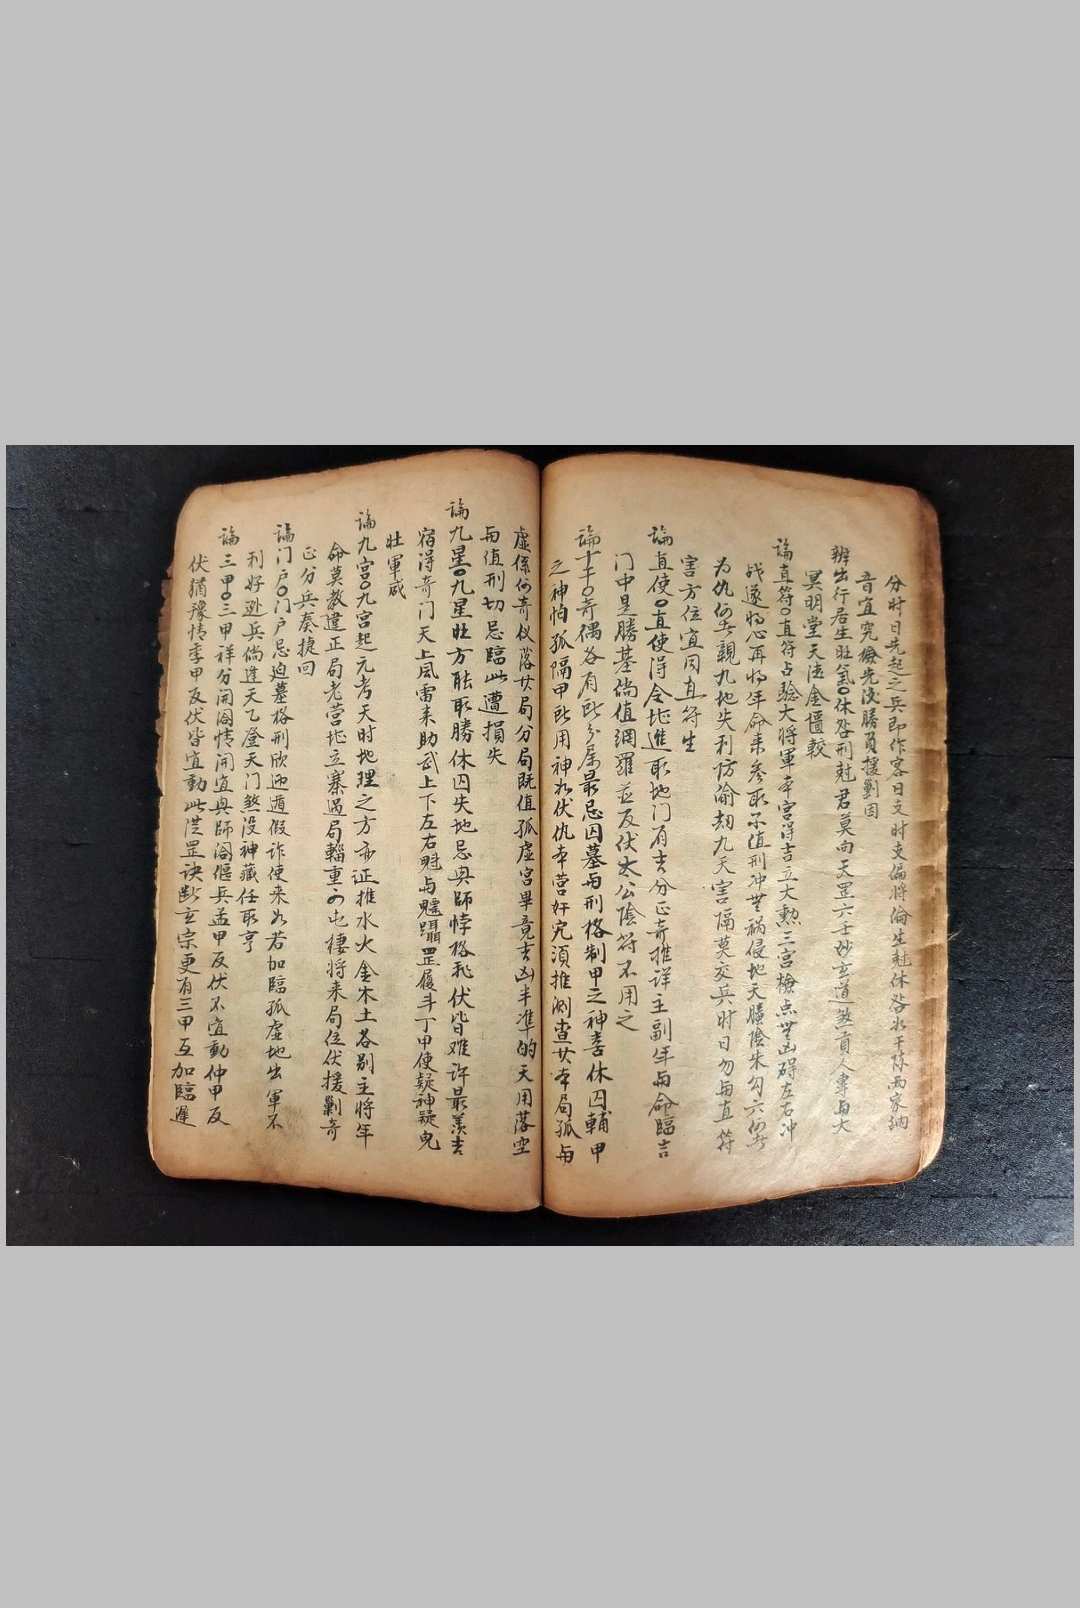 分时日先起之兵即作客日支时支偏将論生尅休咎水干隊西家納
音宜究檢先決勝負援剿因
辨出行君生旺氣〇休咎刑尅君莫向天罡六壬妙玄道煞貢人專與大
冥明堂天德金匱較
論直符〇直符占驗大将軍本宫得吉立大勲三宫檢点無凶碍左右冲
战遂将心再将年命来参取不值刑冲無祸侵地天朦陰朱勾六
为仇親九地失利防偷劫九天害隔莫交兵时日勿与直符
害方位宜同直符生
論直使〇直使得令堪進取地门有吉分正奇推详主副年与命臨吉
门中是勝基倘值網羅並反伏太公陰符不用之
論十干〇奇偶各有所分属最忌囚墓与刑格制甲之神喜休囚輔甲
之神怕孤隔甲所用神水伏仇本营奸宄須推測查其本局孤与
虚係何奇仪落其局分局既值孤虚宫畢竟吉凶半準的天用落空
与值刑切忌臨此遭損失
論九星〇九星旺方能取勝休囚失地忌興師悖格飛伏皆难许最羡吉
宿得奇门天上風雷来助武上下左右魁与魒躡罡履斗丁甲使疑神疑鬼
壮軍威
論九宫〇九宫起元考天时地理之方亦证推水火金木土各别主將年
命莫教違正局老营堪立寨遇局輜重可屯棲将来局位伏援剿奇
正分兵奏捷回
論门户〇门户忌迫墓格刑欣迎遁假詐使来如若加臨孤虚地出軍不
利好逊兵倘逢天乙登天门煞没神藏任取亨
論三甲〇三甲祥分開阖情開宜興師阖偃兵孟甲反伏不宜動仲甲反
伏猶豫情季甲反伏皆宜動此是罡诀断玄宗更有三甲互加臨遲